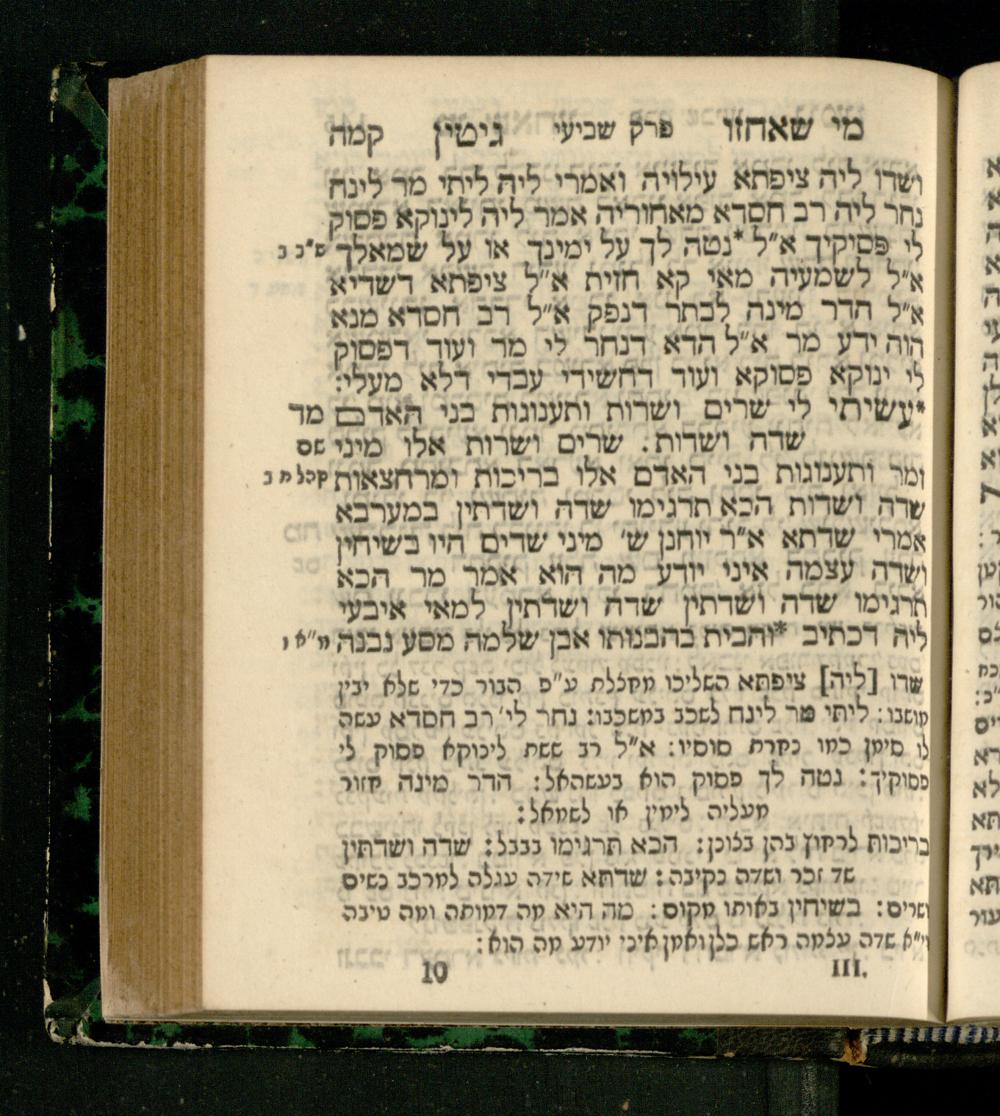 מי שאחזו פרק שביעי גיטין קמה
ושדו ליה ציפתא עילויה ואמרי ליה ליתי מר לינח
נחר ליה רב חסדא מאחוריה אמר ליה לינוקא פסוק
לי פסיקיך א״ל *נטה לך על ימינך או על שמאלך ש״ב ב
א״ל לשמעיה מאי קא חזית א״ל ציפתא דשדיא
א״ל הדר מינה לבתר דנפק א״ל רב חסדא מנא
הוה ידע מר א״ל חדא דנחר לי מר ועוד דפסוק
לי ינוקא פסוקא ועוד דחשידי עבדי דלא מעלי:
*עשיתי לי שרים ושרות ותענוגות בני האדם מד
שדה ושדות. שרים ושרות אלו מיני שם
זמר ותענוגות בני האדם אלו בריכות ומרחצאות קהלת ב
שדה ושדות הכא תרגימו שדה ושדתין במערבא
אמרי שדתא א״ר יוחנן ש׳ מיני שדים היו בשיחין
ושדה עצמה איני יודע מה הוא אמר מר הכא
תרגימו שדה ושדתין שדה ושדתין למאי איבעי
ליה דכתיב *והבית בהבנותו אבן שלמה מסע נבנה מ״א ו
שדו [ליה] ציפתא השליכו מחצלת ע״פ הבור כדי שלא יבין
מושבו: ליתי מר לינח לשכב במשכבו: נחר לי׳ רב חסדא עשה
לו סימן כמו נחרת סוסיו: א״ל רב ששת לינוקא פסוק לי
פסוקיך: נטה לך פסוק הוא בעשהאל: הדר מינה חזור
מעליה לימין או לשמאל:
בריכות לרחוץ בהן בצונן: הכא תרגימו בבבל: שדה ושדתין
שד זכר ושדה נקיבה: שדתא שידה עגלה למרכב נשים
ושרים: בשיחין באותו מקום: מה היא מה דמותה ומה טיבה
וי״א שדה עצמה ראש כלן ואמן איני יודע מה הוא:
10 III.